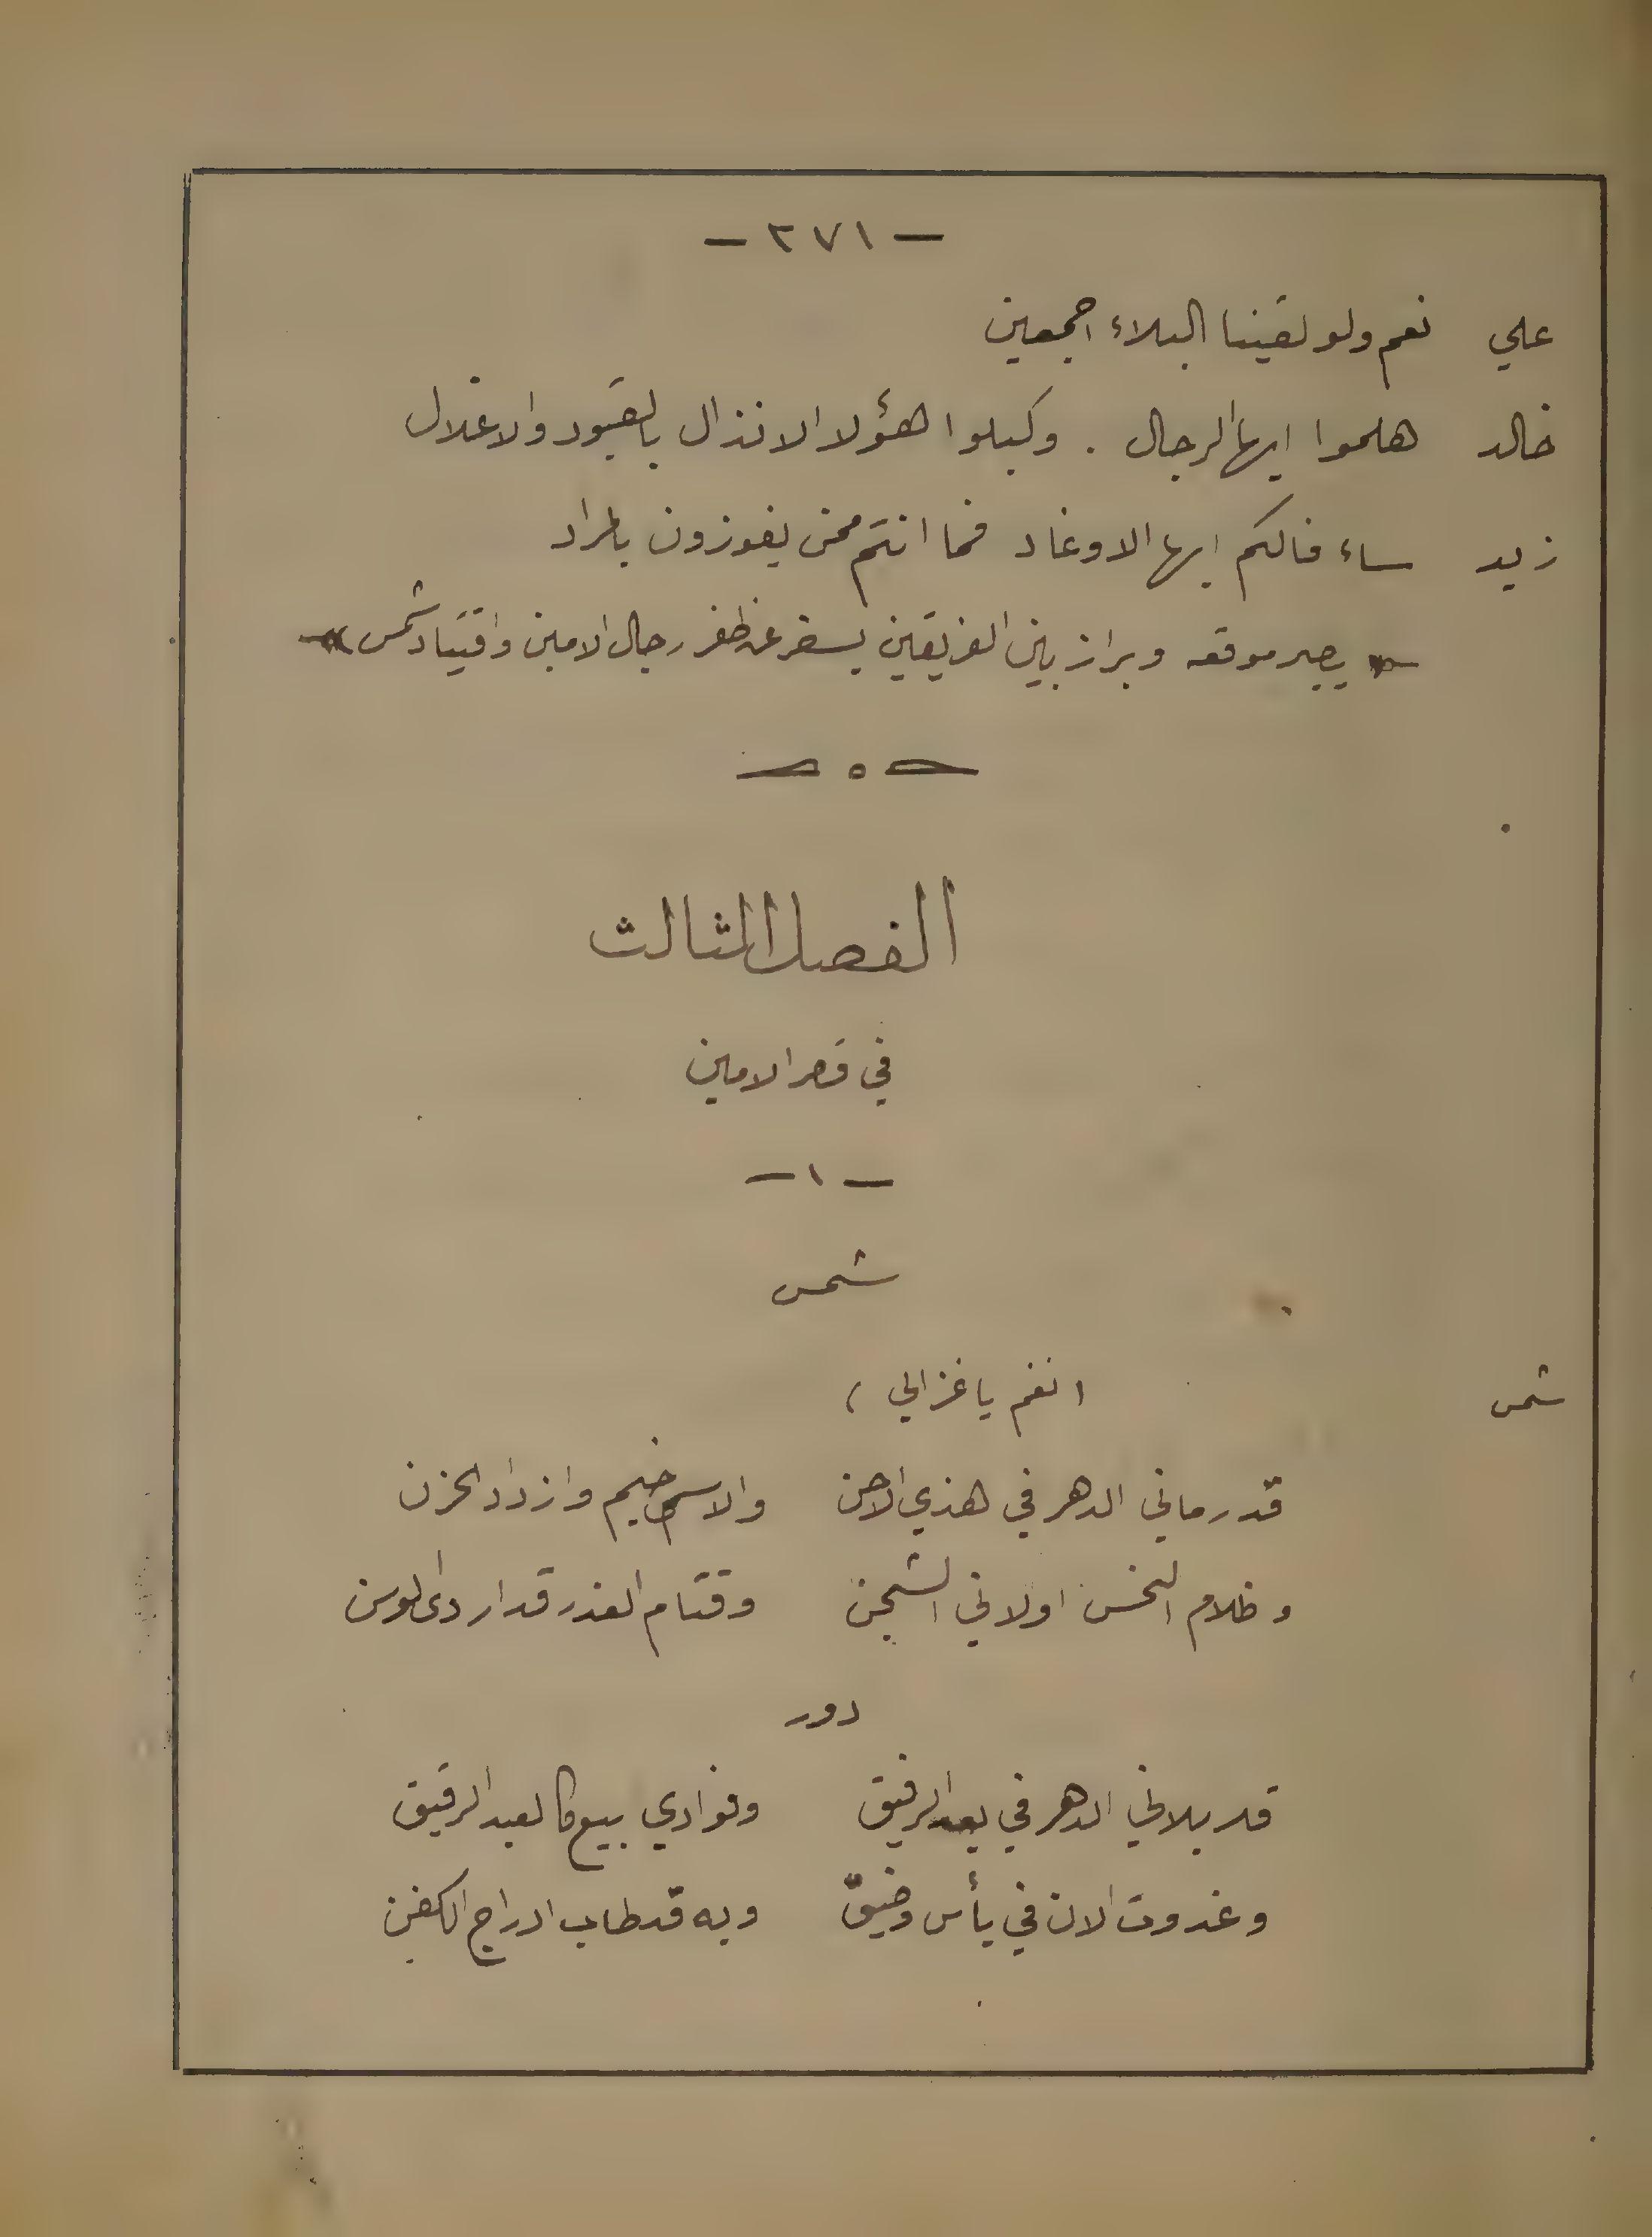 — ٢٧١ —
علي نعم ولو لقينا البلاء اجمعين
خالد هلموا ايها الرجال . وكبلوا هؤلا الانذال بالقيود والاغلال
زيد ساء فالكم ايها الاوغاد فما انتم ممن يفوزون بالمراد
« يصير موقعه وبراز بين الفريقين يسفر عن ظفر رجال الامين واقتياد شمس »
الفصل الثالث
في قصر الامين
— ١ —
شمس
شمس ( نغم يا غزالي )
قد رماني الدهر في هذي الاحن والاسى خيم وازداد الحزن
وظلام النحس اولاني الشجن وقتام الغدر قد اردى الوسن
دور
قد بلاني الدهر في بعد الرفيق وفوادي بيع كالعبد الرقيق
وغدوت الان في يأس وضيق وبه قد طاب ادراج الكفن